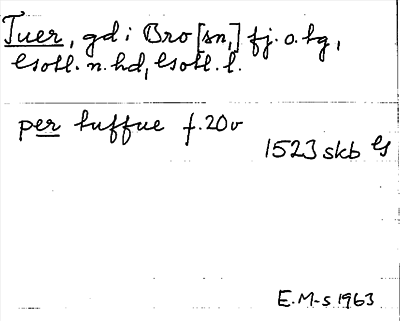 Tuer, gd i Bro [sn,] fj. o. hg,
Gotl. n. hd, Gotl. l.
per tuffue f. 20v
1523 skb Gs
E. M-s 1963